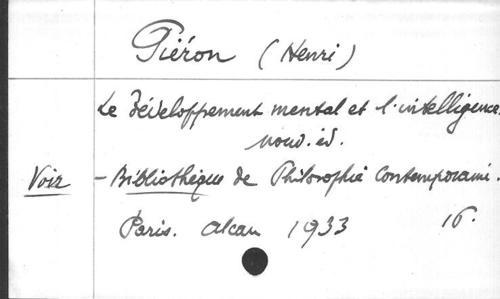 Piéron (Henri)
Le développement mental et l'intelligence.
nouv. éd.
Voir - Bibliothèque de Philosophie Contemporaine.
Paris. Alcan 1933 16.